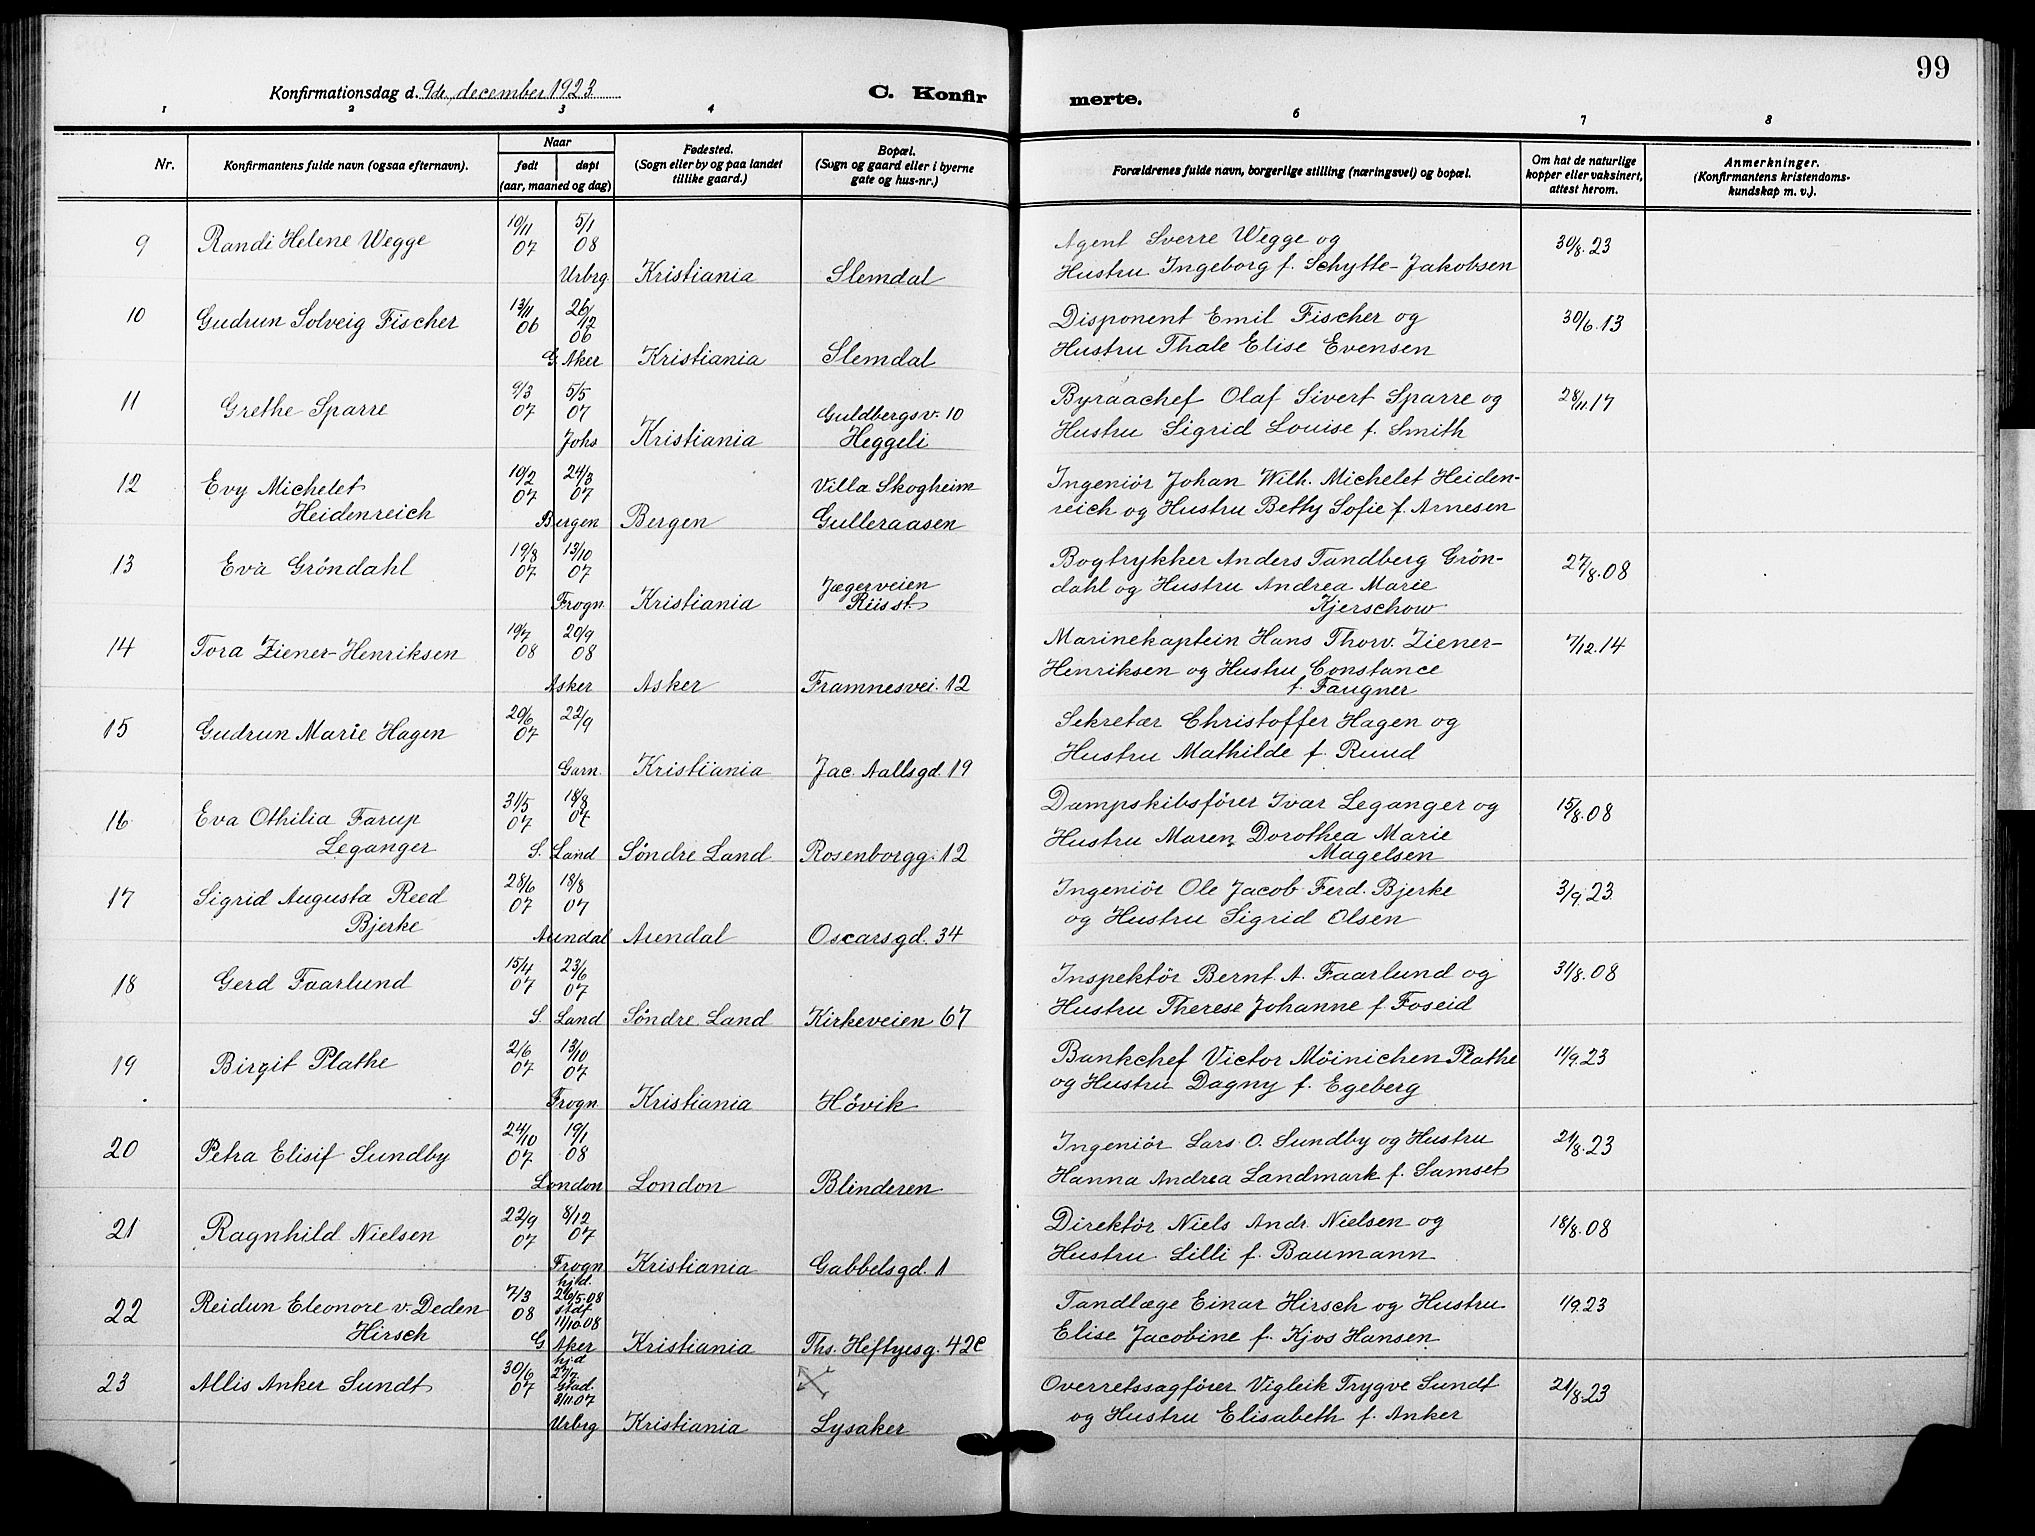 99
Konfirmationsdag d. 9de december 1923
C. Konfir merte.
1 2 3 4 5 6 7 8
Nr. Konfirmantens fulde navn (ogsaa efternavn). Naar født døpt (aar, maaned og dag) Fødested. (Sogn eller by og paa landet tillike gaard.) Bopæl. (Sogn og gaard eller i byerne gate og hus-nr.) Forældrenes fulde navn, borgerlige stilling (næringsvei) og bopæl. Om hat de naturlige kopper eller vaksinert, attest herom. Anmerkninger. (Konfirmantens kristendomskundskap m. v.)
9 Randi Helene Wegge 10/11 07 5/1 08 Agent Sverre Wegge og 30/8.23
Urbrg. Kristiania Slemdal Hustru Ingeborg f. Schytte-Jakobsen
10 Gudrun Solveig Fischer 13/11 06 26/12 06 Disponent Emil Fischer og 30/6.13
G. Aker Kristiania Slemdal Hustru Thale Elise Evensen
11 Grethe Sparre 9/3 07 5/5 07 Guldbergsv. 10 Byraachef Olaf Sivert Sparre og 28/11.17
Johs Kristiania Heggeli Hustru Sigrid Louise f. Smith
12 Evy Michelet 10/2 07 24/3 07 Villa Skogheim Ingeniör Johan Wilh. Michelet Heiden-
Heidenreich Bergen Bergen Gulleraasen reich og Hustru Betty Sofie f. Arnesen
13 Eva Gröndahl 19/8 07 13/10 07 Jægerveien Bogtrykker Anders Tandberg Grön- 27/8.08
dahl og Hustru Andrea Marie
Frogn. Kristiania Riis st. Kjerschow
14 Tora Ziener-Henriksen 19/7 08 20/9 08 Marinekaptein Hans Thorv. Ziener- 7/12.14
Henriksen og Hustru Constance
Asker Asker Framnesvei. 12 f. Faugner
15 Gudrun Marie Hagen 20/6 07 22/9 Sekretær Christoffer Hagen og
Garn. Kristiania Jac. Aallsgd. 19 Hustru Mathilde f. Ruud
16 Eva Othilia Farup 31/5 07 18/8 07 Dampskibsförer Ivar Leganger og 15/8.08
Leganger Hustru Maren Dorothea Marie
S. Land Söndre Land Rosenborgg. 12 Magelsen
17 Sigrid Augusta Reed 28/6 07 18/8 07 Ingeniör Ole Jacob Ferd. Bjerke 3/9.23
Bjerke Arendal Arendal Oscarsgd. 34 og Hustru Sigrid Olsen
18 Gerd Faarlund 15/4 07 23/6 07 Inspektör Bernt. A. Faarlund og 31/8.08
S. Land Söndre Land Kirkeveien 67 Hustru Therese Johanne f. Foseid
19 Birgit Plathe 2/6 07 13/10 07 Bankchef Victor Möinichen Plathe 11/9.23
Frogn Kristiania Hövik og Hustru Dagny f. Egeberg
20 Petra Elisif Sundby 24/10 07 19/1 08 Ingeniör Lars O. Sundby og Hustru 21/8.23
London London Blinderen Hanna Andrea Landmark f. Samset
21 Ragnhild Nielsen 22/9 07 8/12 07 Direktör Niels Andr. Nielsen og 18/8.08
Frogn Kristiania Gabbelsgd. 1 Hustru Lilli f. Baumann
22 Reidun Eleonore v. Deden 7/3 08 hjd. 26/5.08 stdf 11/10.08 Tandlæge Einar Hirsch og Hustru 1/9.23
Hirsch G. Aker Kristiania Ths. Heftyesg. 42c Elise Jacobine f. Kjos Hansen
23 Allis Anker Sundt 30/6 07 hjd 27/7 Stad. 3/11.07 Overretssagförer Vigleik Trygve Sundt 21/8.23
Urbrg Kristiania Lysaker og Hustru Elisabeth f. Anker